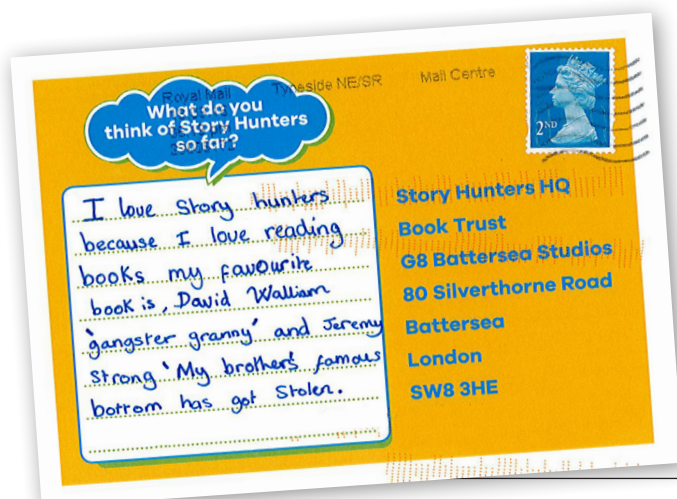 Royal Mail
Tyneside NE/SR
Mail Centre
What do you
think of Story Hunters
so far?
2ND
I love Story hunters
because I love reading
books my favourite
book is, David Walliam
'gangster granny' and Jeremy
Strong 'My brother's famous
bottom has got Stolen.
Story Hunters HQ
Book Trust
G8 Battersea Studios
80 Silverthorne Road
Battersea
London
SW8 3HE